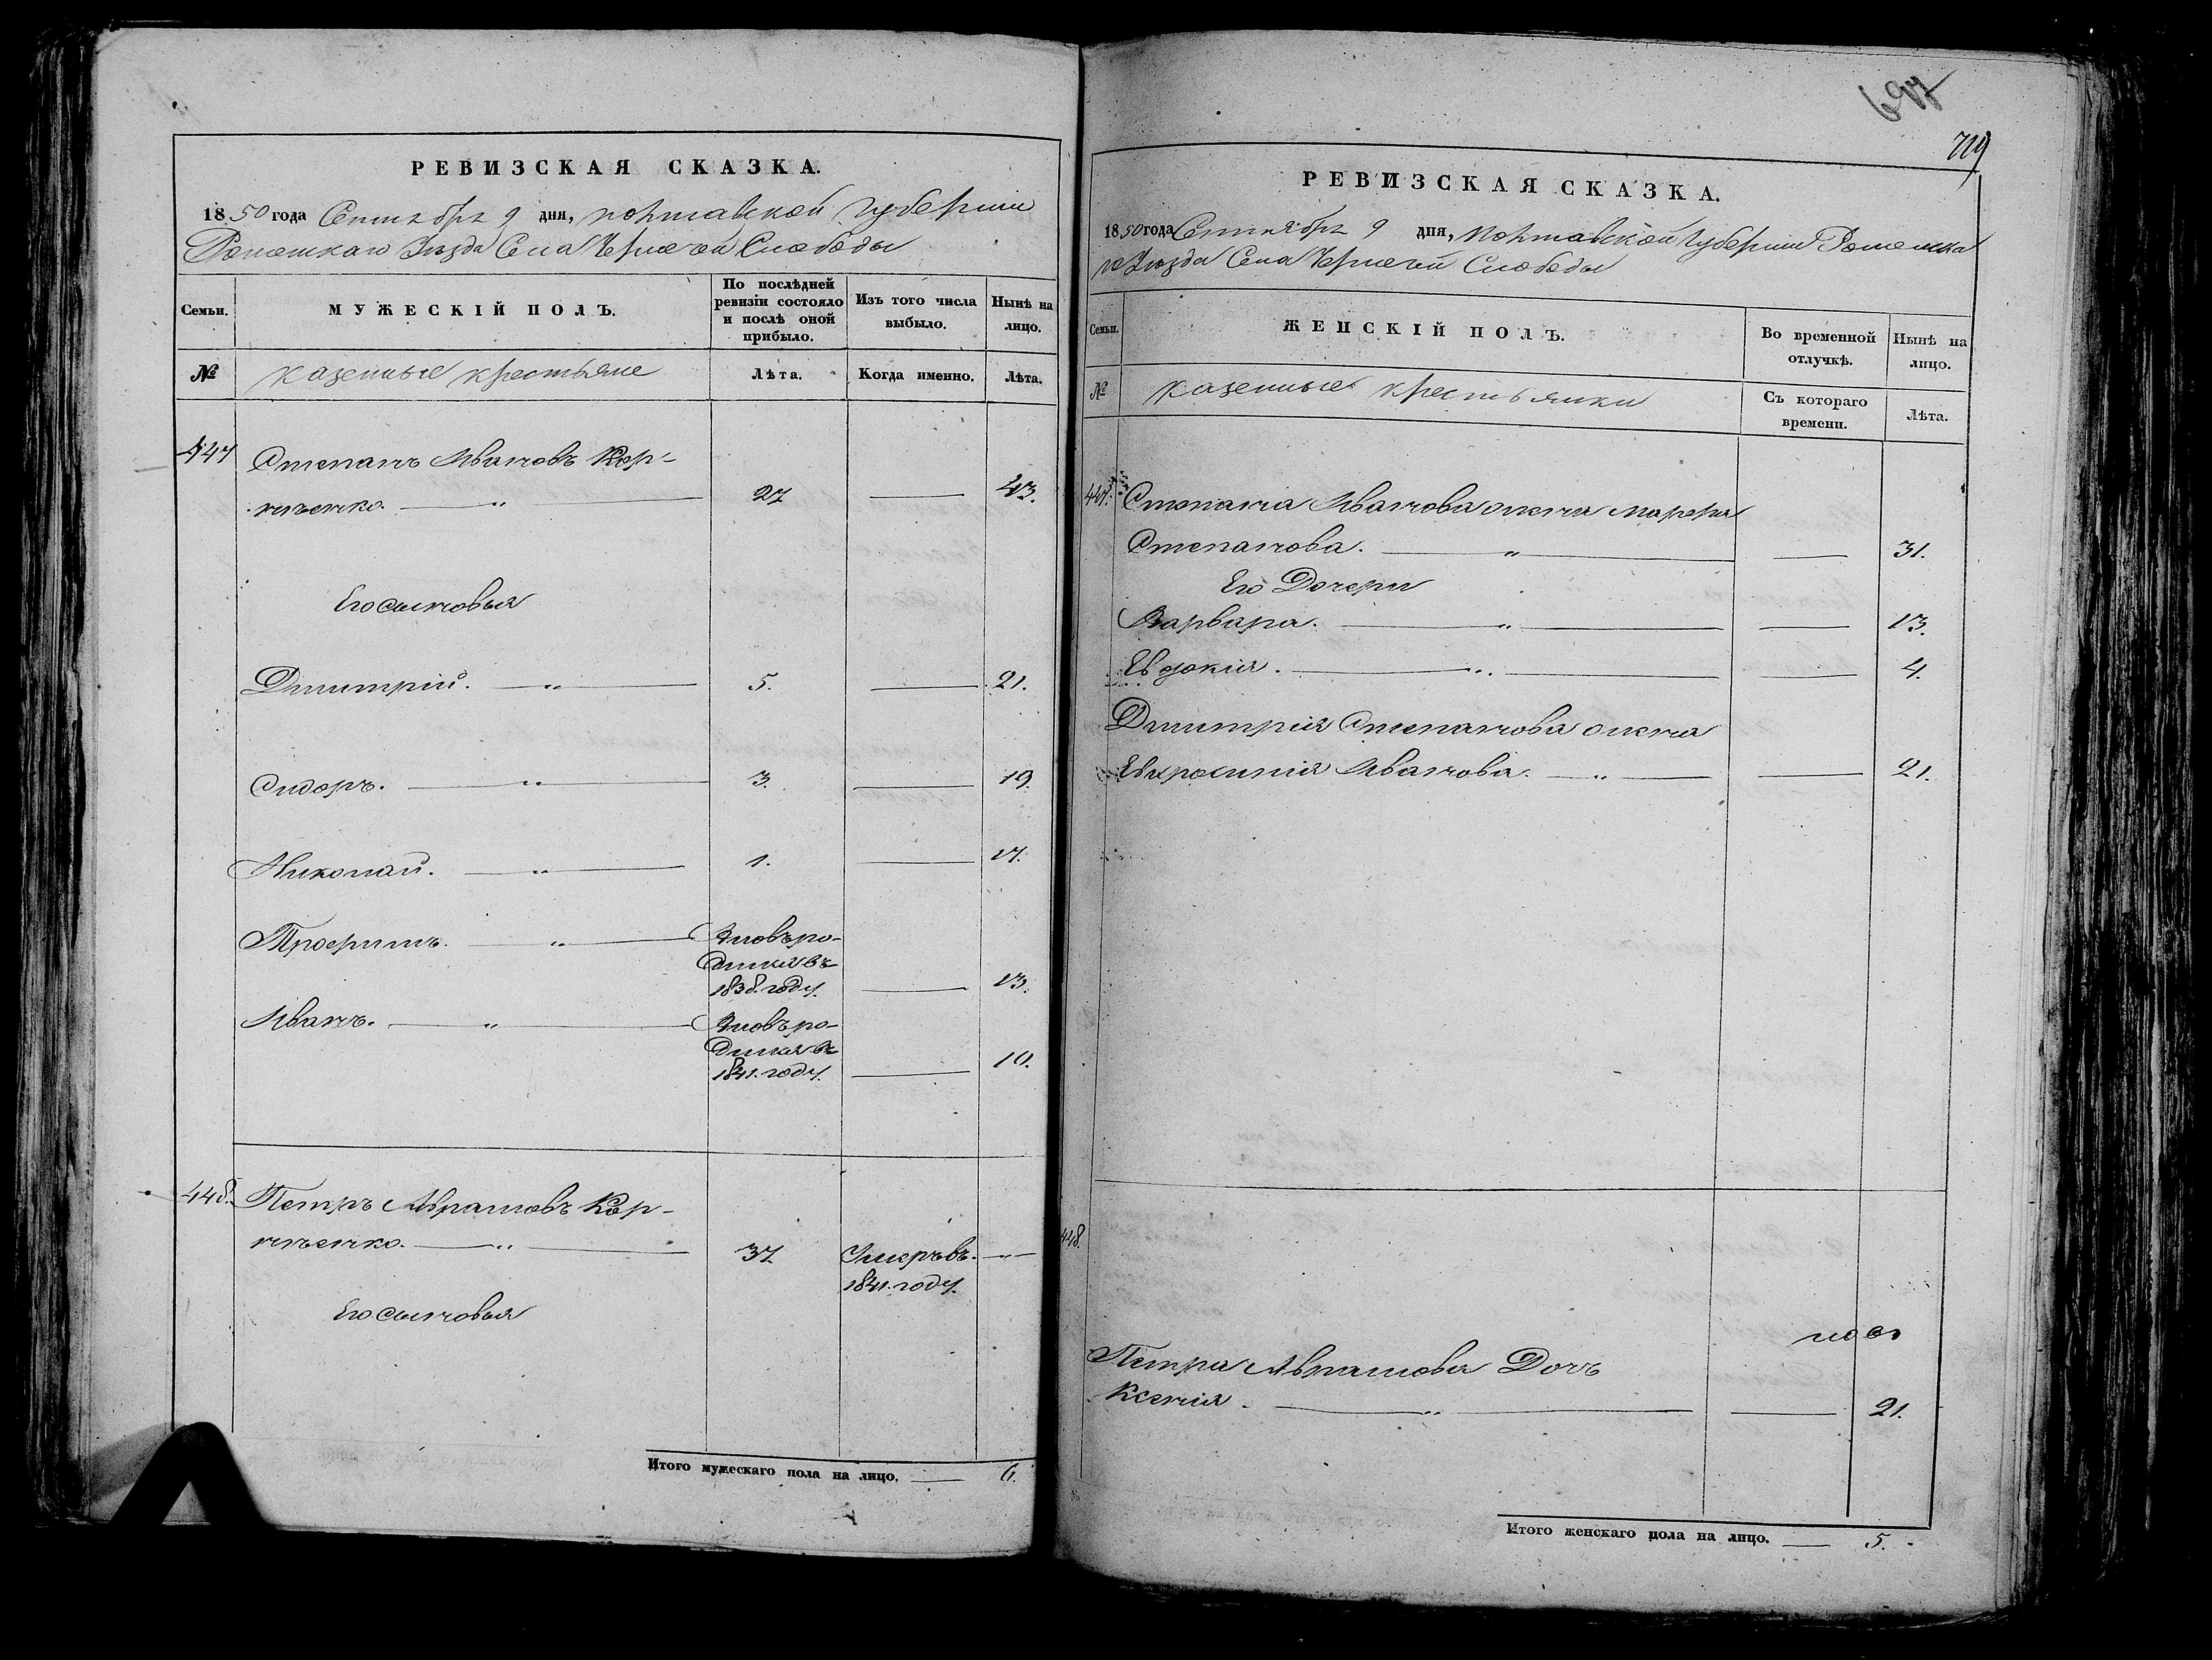 РЕВИЗСКАЯ СКАЗКА.
1850 года Сентября 9 дня, Полтавской Губернии
Роменскаго Уѣзда Села Чернечей Слободы
Семьи.
МУЖЕСКІЙ ПОЛЪ.
По послѣдней ревизіи состояло и послѣ оной прибыло.
Изъ того числа выбыло.
Нынѣ на лицо.
№ казенные крестьяне Лѣта. Когда именно. Лѣта.
447 Степанъ Ивановъ Кор-
нѣенко. — " — 27 — 43.
Его сыновья
Дмитрій. — " — 5. — 21.
Сидоръ. — " — 3. — 19.
Николай. — " — 1. — 17.
Трофимъ. — " — Вновь ро-
дился въ
1838. году. — 13.
Иванъ. — " — Вновь ро-
дился въ
1841. году. — 10.
448. Петръ Аврамовъ Кор-
нѣенко. — " — 37 Умеръ въ — " —
1841. году.
Его сыновья
Итого мужескаго пола на лицо. — 6.
697
719
РЕВИЗСКАЯ СКАЗКА.
1850 года Сентября 9 дня, Полтавской Губернии Роменска
го Уѣзда Села Чернечей Слободы
Семьи.
ЖЕНСКІЙ ПОЛЪ.
Во временной отлучкѣ.
Нынѣ на лицо.
№ казенные крестьянки Съ котораго времени. Лѣта.
447. Степана Иванова жена Марфа
Степанова. — " — — 31.
Его Дочери
Варвара. — " — — 13.
Евдокія. — " — — 4.
Дмитрія Степанова жена
Евфросинія Иванова. — " — — 21.
448.
Петра Аврамова Дочь
Ксенія. — " — — 21.
Итого женскаго пола на лицо. — 5.